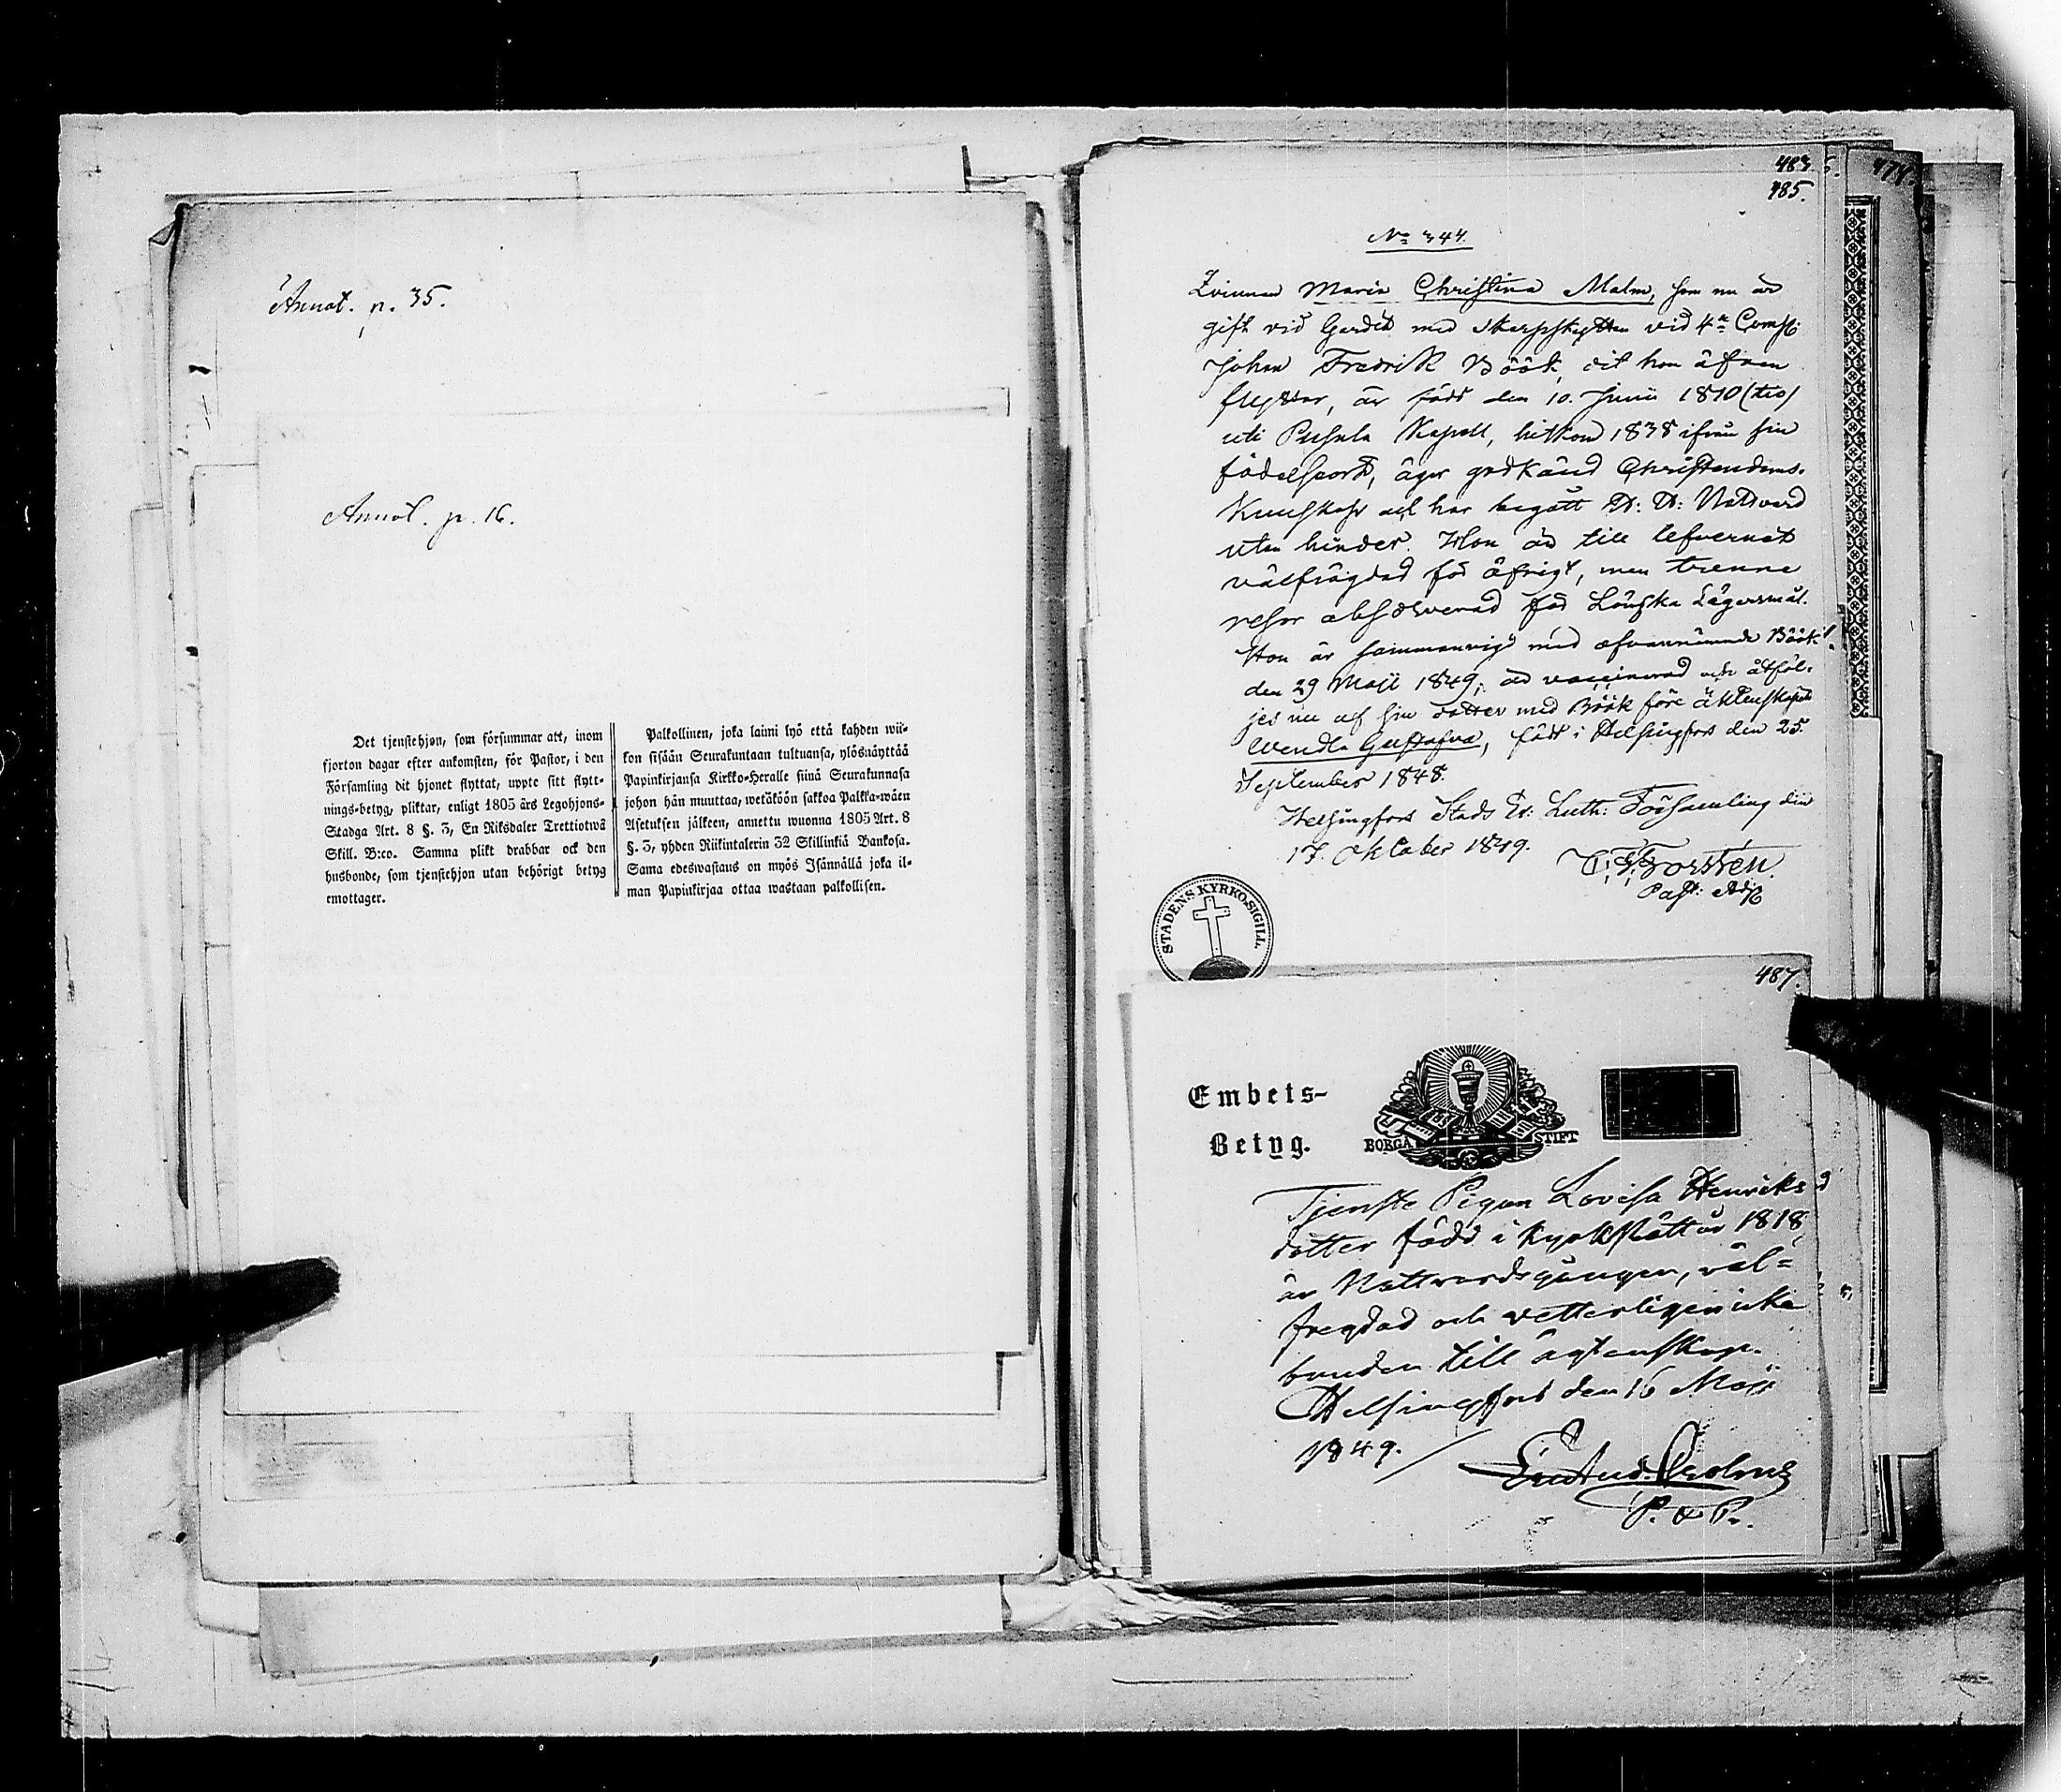 Annot. p. 35.
Annot. p. 16.
Det tjenstehjon, som försummar att, inom
fjorton dagar efter ankomsten, för Pastor, i den
Församling dit hjonet flyttat, uppte sitt flytt-
nings-betyg, pliktar, enligt 1805 års Legohjons-
Stadga Art. 8 §. 3, En Riksdaler Trettiotwå
Skill. B:co. Samma plikt drabbar ock den
husbonde, som tjenstehjon utan behörigt betyg
emottager.
Palkollinen, joka laimi lyö että kahden wii-
kon sisään Seurakuntaan tultuansa, ylösnäyttää
Papinkirjansa Kirkko-Heralle siinä Seurakunnasa
johon hän muuttaa, wetäköön sakkoa Palkka-wäen
Asetuksen jälkeen, annettu wuonna 1805 Art. 8
§. 3, yhden Riikintalerin 32 Skillinkiä Bankosa.
Sama edeswastaus on myös Isännällä joka il-
man Papinkirjaa ottaa wastaan palkollisen.
474.
483.
485.
No 344.
Qvinnan Maria Christina Malm, som nu är
gift vid Gardet med skarpskytten vid 4e Comp:
Johan Fredrik Böök, dit hon äfven
flyttar, är född den 10. Junii 1810 (tio)
uti Pusula Kapell, hitkom 1838 ifrån sin
födelseort, äger godkänd Christendoms-
Kunskap och har begått H: H: Nattvard
utan hinder. Hon är till lefvernet
välfrägdad för öfrigt, men trenne
resor absolverad för Lönska Lägersmål.
Hon är sammanvigd med ofvannämnde Böök
den 29 Maji 1849; är vaccinerad och åtföl-
jes nu af sin dotter med Böök före äktenskapet
Wendla Gustafva, född i Helsingfors den 25.
September 1848.
Helsingfors Stads Ev: Luth: Församling den
17. Oktober 1849.
Forstén
Past: Adj.
STADENS KYRKO SIGILL.
487.
Embets-
Betyg.
BORGÅ STIFT
Tjenste Pigan Lovisa Henriks
dotter född i Kyrkslätt år 1818
är Nattvardsgången, väl=
fregdad och vetterligen icke
bunden till ägtenskap.
Helsingfors den 16 Maji
1849.
P. & P.